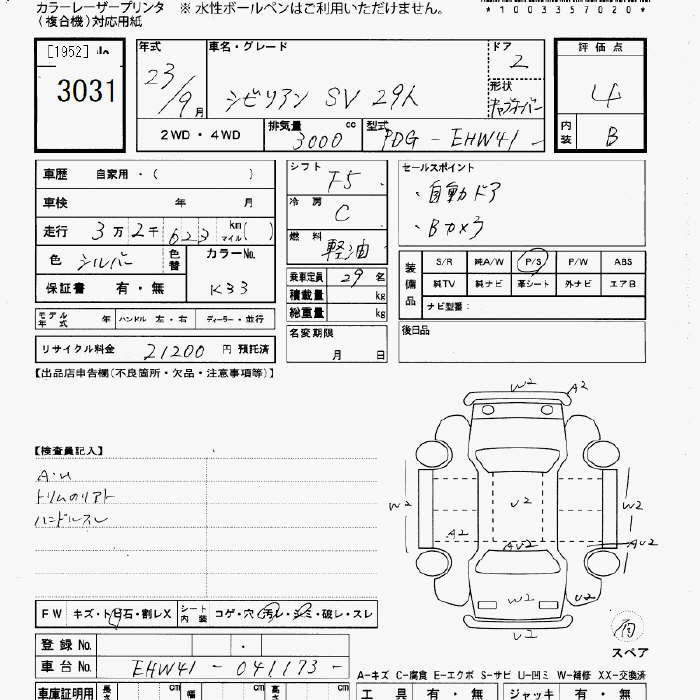 カラーレーザープリンタ ※ 水性ボールペンはご利用いただけません。
(複合機)対応用紙
*1003357020*
[1952]
3031
年式
23/9月
車名・グレード
シビリアン SV 29人
ドア
2
形状
キャブオーバー
評価点
4
内装
B
2WD・4WD
排気量
3000 cc
型式
PDG-EHW41-
車歴 自家用・( )
車検 年 月
走行 3万2千623 km マイル( )
色 シルバー
色替
カラーNo.
K33
保証書 有・無
シフト
F5
冷房
C
燃料
軽油
乗車定員 29名
積載量 kg
総重量 kg
セールスポイント
・自動ドア
・Bカメラ
装備品
S/R 純A/W P/S P/W ABS
純TV 純ナビ 革シート 外ナビ エアB
ナビ型番:
モデル年式 年 ハンドル 左・右 ディーラー・並行
リサイクル料金 21200 円 預託済
名変期限
月 日
後日品
【出品店申告欄(不良箇所・欠品・注意事項等)】
【検査員記入】
A・U
トリムのリアト
ハンドルスレ
W2 A2
W2 U2 W2
A2 AU2 AU2
W2 U2
U2
スペア
FW キズ・ト石・割レX シート内装 コゲ・穴・汚レ・シミ・破レ・スレ
登録No.
車台No. EHW41-041173-
A-キズ C-腐食 E-エクボ S-サビ U-凹ミ W-補修 XX-交換済
車庫証明用 長さ cm 幅 cm 高さ cm
工具 有・無 ジャッキ 有・無